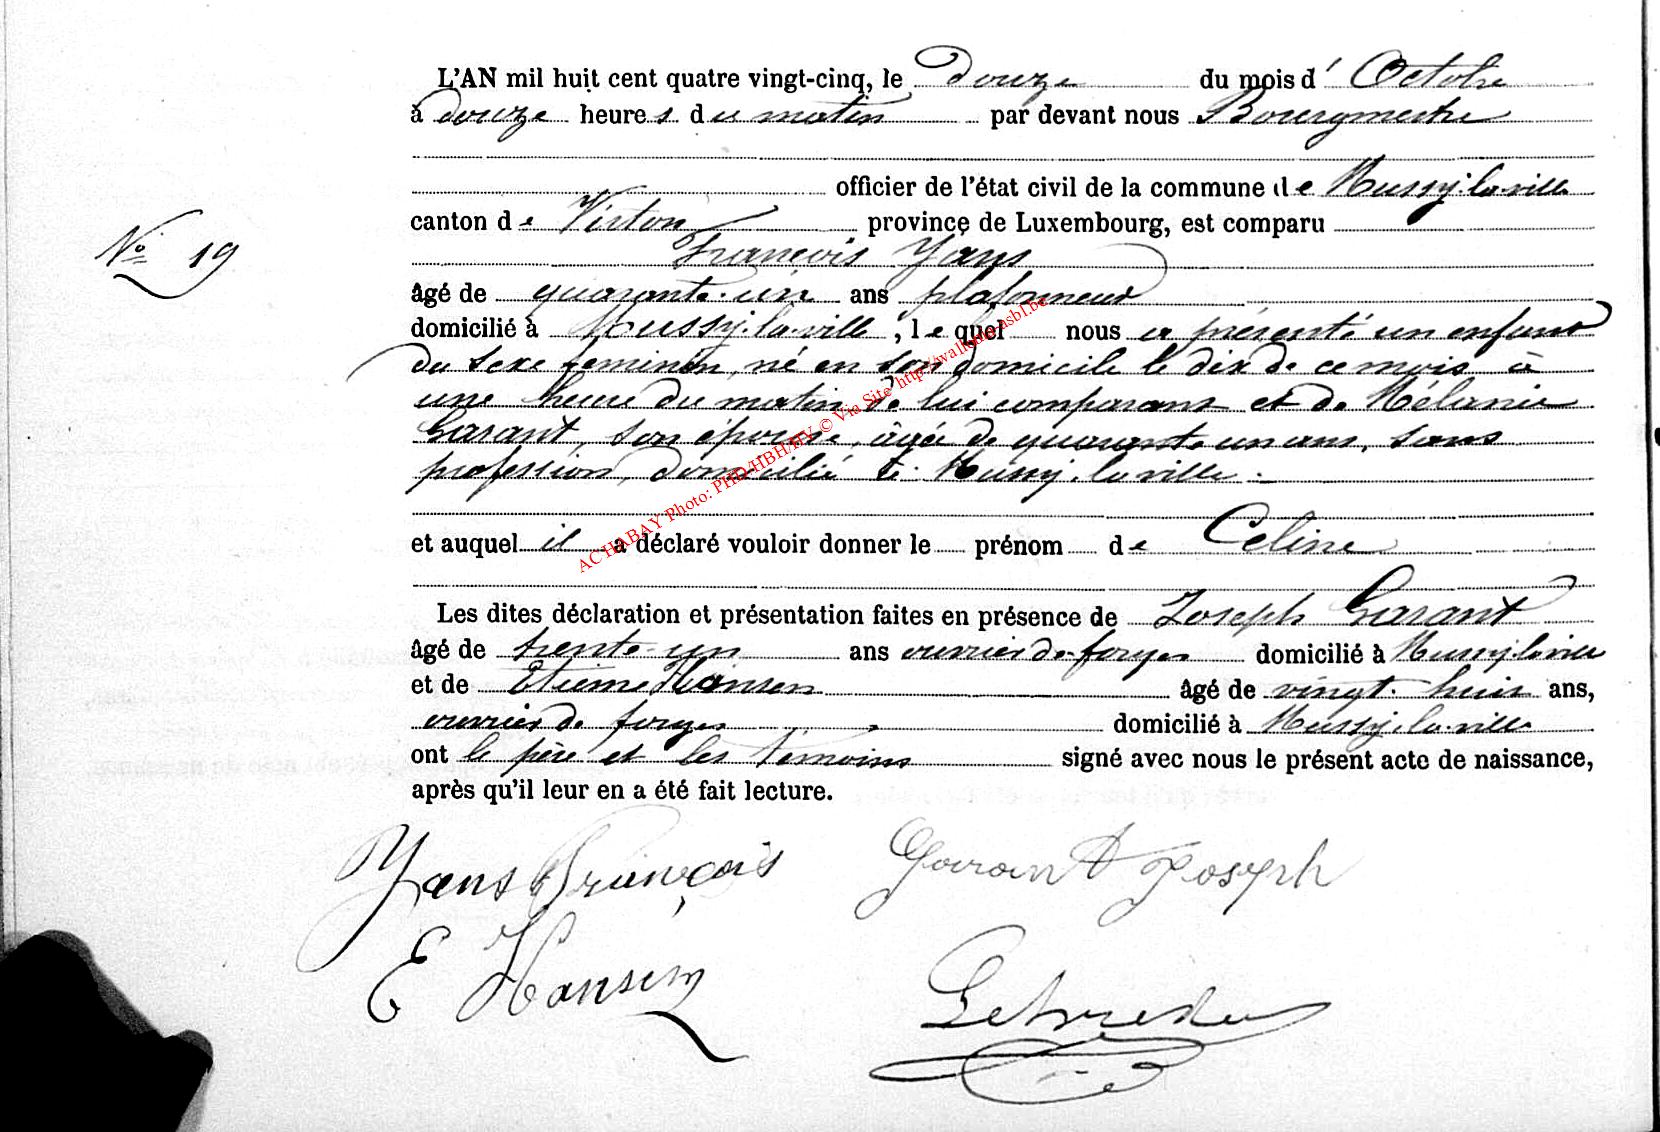 L'AN mil huit cent quatre vingt-cinq, le douze du mois d' Octobre
à douze heures du matin par devant nous Bourgmestre
officier de l'état civil de la commune de Mussy-la-ville
canton de Virton province de Luxembourg, est comparu
François Yans
N° 19
âgé de quarante-un ans plafonneur
domicilié à Mussy-la-ville, lequel nous a présenté un enfant
du sexe feminin, né en son domicile le dix de ce mois à
une heure du matin de lui comparant et de Mélanie
Garant, son épouse, âgée de quarante un ans, sans
profession, domicilié à Mussy-la-ville.
et auquel il a déclaré vouloir donner le prénom de Celine
Les dites déclaration et présentation faites en présence de Joseph Garant
âgé de trente-un ans ouvrier de forges domicilié à Mussy-la-ville
et de Etienne Hansen âgé de vingt-huit ans,
ouvrier de forges domicilié à Mussy-la-ville
ont le père et les témoins signé avec nous le présent acte de naissance,
après qu'il leur en a été fait lecture.
Yans François Garant Joseph
E Hansen
ACHABAY Photo: PHD/HBH/HV © Via Site http://wallonia-asbl.be